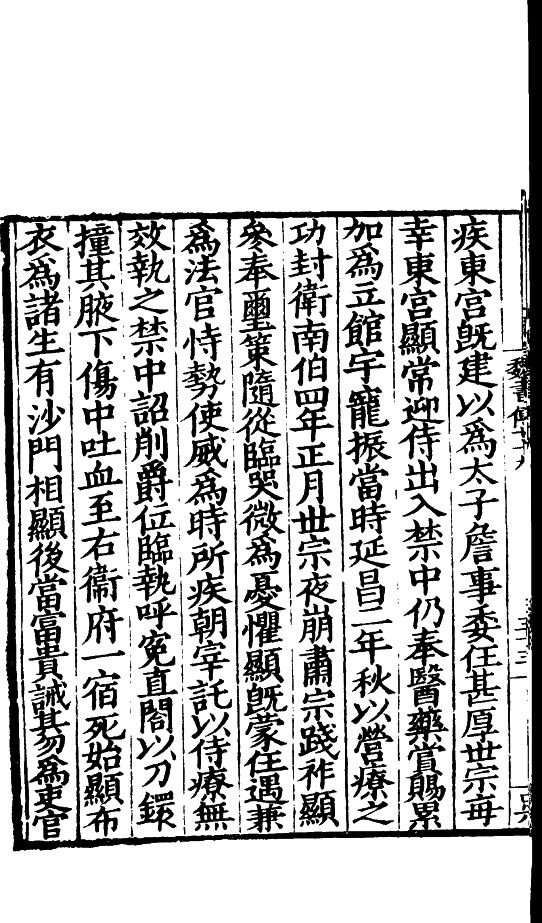 疾東宮旣建以爲太子詹事委任甚厚世宗每
幸東宮顯常迎侍出入禁中仍奉醫藥賞賜累
加爲立館宇寵振當時延昌二年秋以營療之
功封衛南伯四年正月世宗夜崩肅宗踐祚顯
參奉璽策隨從臨哭微爲憂懼顯旣蒙任遇兼
爲法官恃勢使威爲時所疾朝宰託以侍療無
效執之禁中詔削爵位臨執呼寃直閤以刀鐶
撞其腋下傷中吐血至右衞府一宿死始顯布
衣爲諸生有沙門相顯後當富貴誡其勿爲吏官